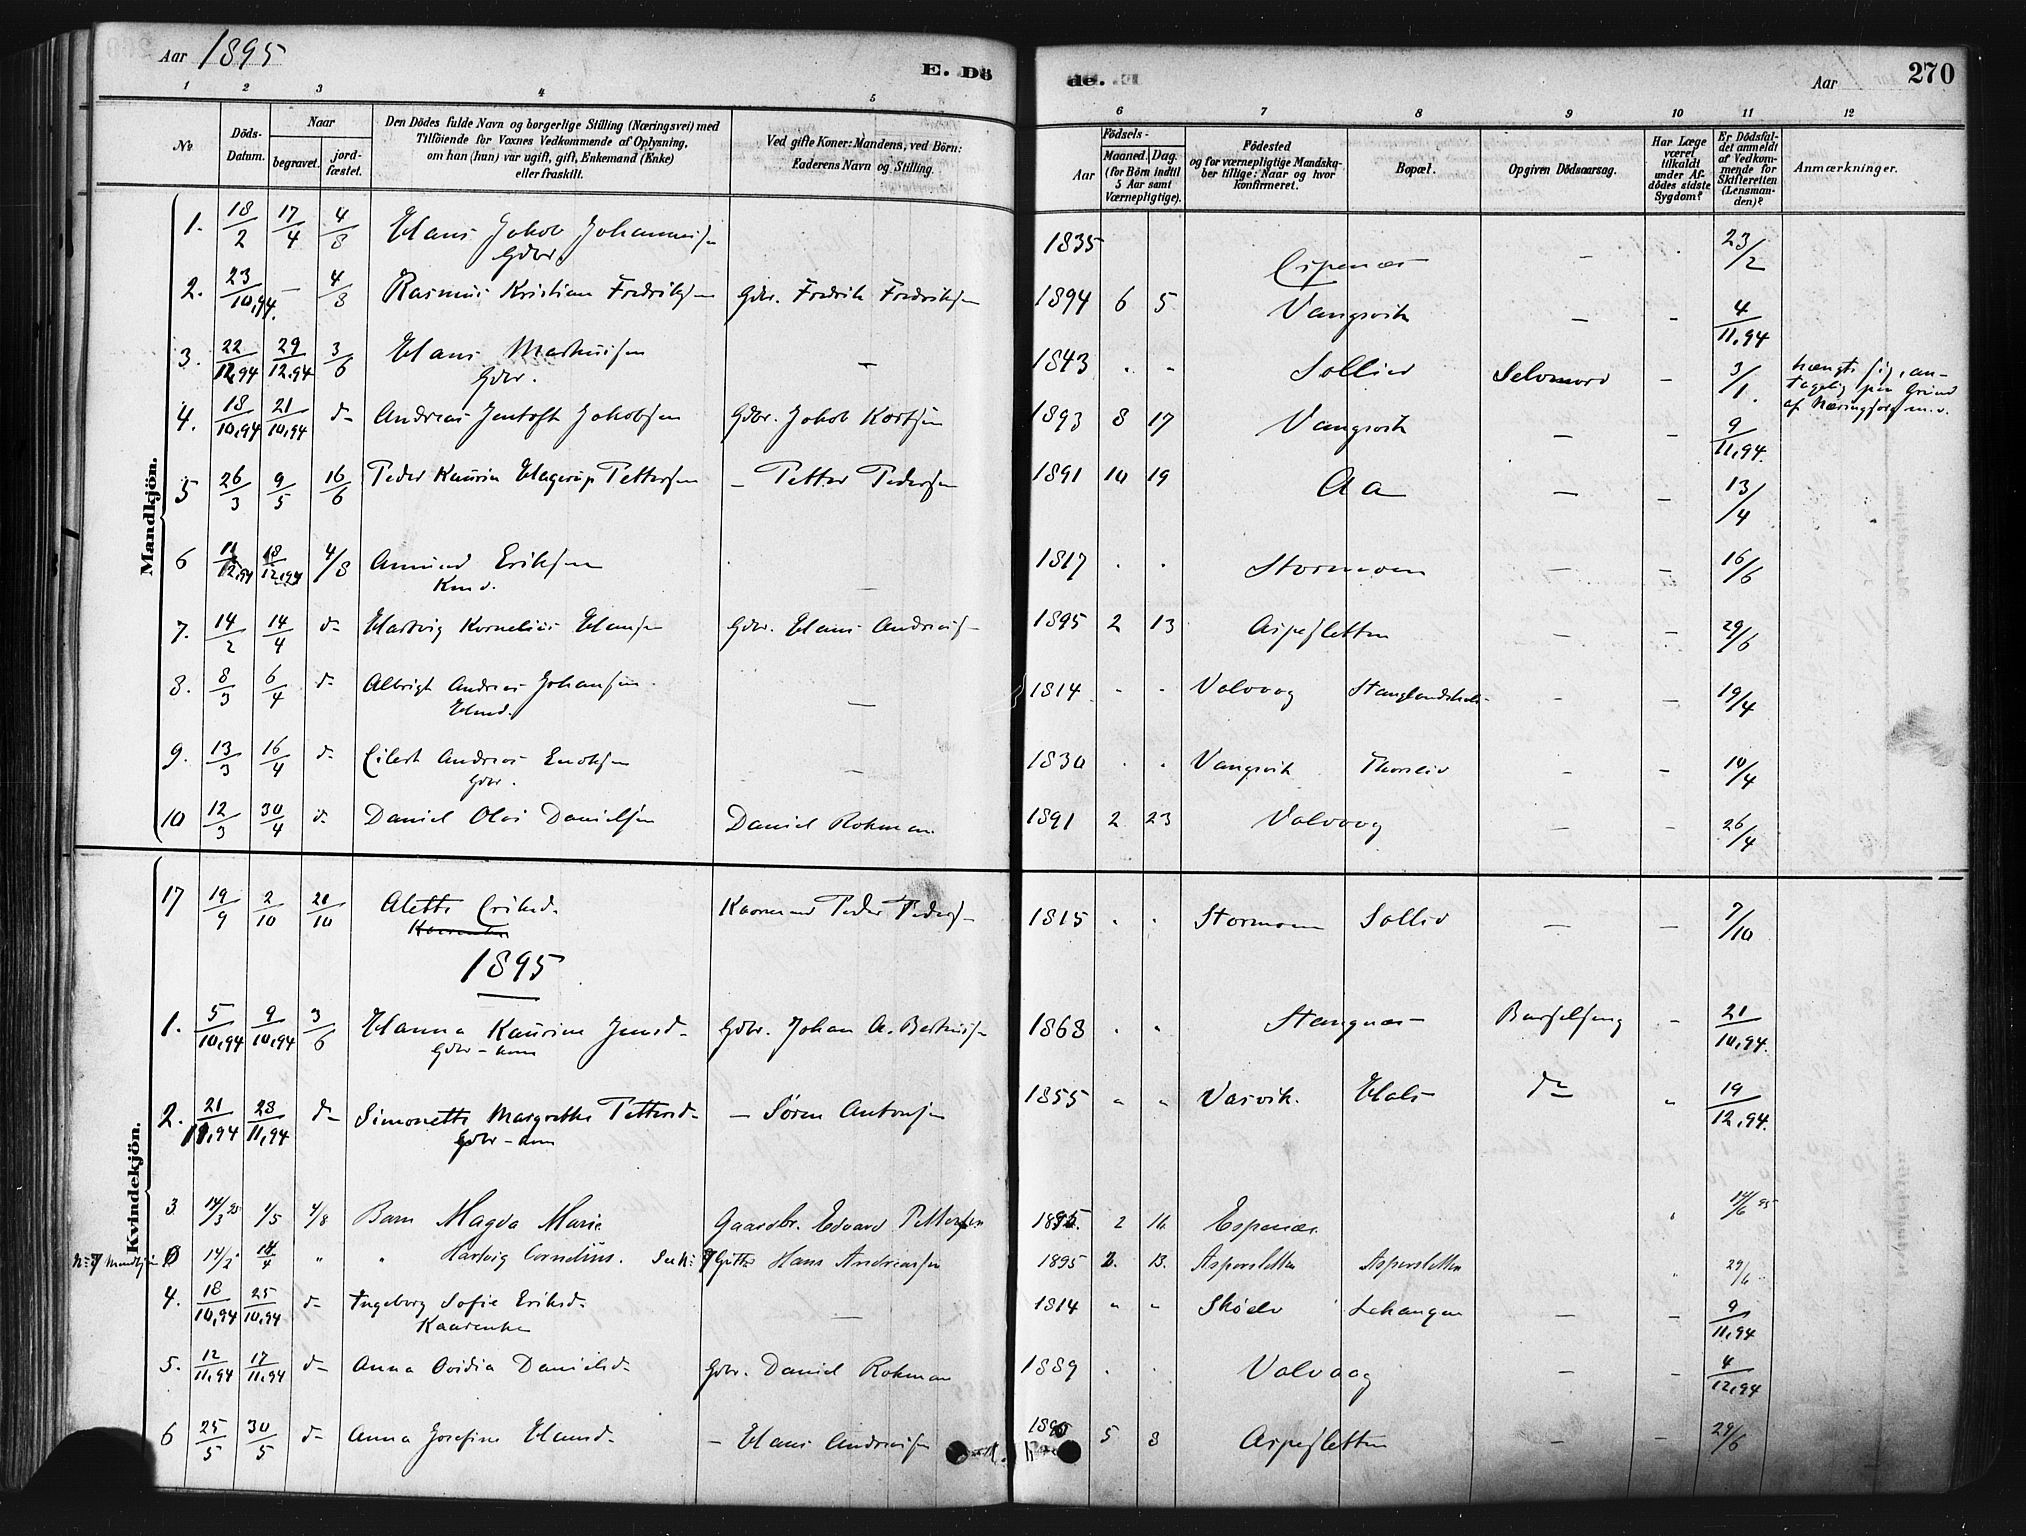 Aar 1895
E. Dö
de.
Aar
270
1 2 3 4 5 6 7 8 9 10 11 12
No
Döds-Datum.
Naar
begravet.
jord-fæstet.
Den Dödes fulde Navn og borgerlige Stilling (Næringsvei) med
Tilföiende for Voxnes Vedkommende af Oplysning,
om han (hun) var ugift, gift, Enkemand (Enke)
eller fraskilt.
Ved gifte Koner: Mandens, ved Börn:
Faderens Navn og Stilling.
Födsels-
Aar
Maaned. Dag.
(for Börn indtil
5 Aar samt
Værnepligtige).
Födested
og for værnepligtige Mandska-
ber tillige: Naar og hvor
konfirmeret.
Bopæl.
Opgiven Dödsaarsag.
Har Læge
været
tilkaldt
under Af-
dödes sidste
Sygdom?
Er Dödsfal-
det anmeldt
af Vedkom-
mende for
Skifteretten
(Lensman-
den)?
Anmærkninger.
Mandkjön.
1. 18/2 17/4 4/8 Hans Jakob Johannessen 1835 Espenæs - 23/2
Gdbr.
2. 23/10,94. - 4/8 Rasmus Kristian Fredriksen Gdbr. Fredrik Fredriksen 1894 6 5 Vangsvik - - 4/11,94
3. 22/12,94 29/12.94 3/6 Hans Markussen - 1843 " " Sollied Selvmord - 3/1.
Gdbr.
hængt sig, an-
tagelig paa Grund
af Næringssorg m.v.
4. 18/10,94 21/10,94 d- Andreas Jentoft Jakobsen Gdbr. Jakob Kortsen 1893 8 17 Vangsvik - - 9/11,94.
5 26/3 9/5 16/6 Peder Kaurin Hagerup Pettersen - Petter Pedersen 1891 10 19 Aa - - 13/4
6 11/12,94 18/12,94 4/8 Amund Eriksen - 1817 . . Stormoen - - 16/6
7. 14/2 14/4 d- Hartvig Kornelius Hansen Gdbr. Hans Andreassen 1895 2 13 Aspesletten - - 29/6
8. 8/3 6/4 d- Albrigt Andreas Johansen - 1814 . . Valvaag Stanglandshals - - 19/4
9. 13/3 16/4 d- Eilert Andreas Enoksen - 1830 . . Vangsvik Thorslid - - 10/4
Gdbr.
10 12/3 30/4 d- Daniel Olai Danielsen Daniel Rokman 1891 2 23 Valvaag - - 26/4
Kvindekjön.
17 19/9 2/10 20/10 Alette Eriksd. Kaarmand Peder Pedersen 1815 . . Stormoen Sollid - - 7/10
Kaarenke
1895
1. 5/10,94 9/10,94 3/6 Hanna Kaurine Jensd- Gdbr. Johan A. Bertheussen 1868 . " Stangnæs Barselseng - 21/10,94.
Gdbr-kone
2. 21/11,94 28/11,94 d- Simonette Margrethe Pettersd- - Søren Antonsen 1855 " " Vasvik. Hals d- " 19/12,94.
Gdbr-kone
3 14/3 95 1/5 4/8 Barn Magda Marie Gaardbr. Edvard Pettersen 1895. 2 16. Espenæs. 14/6 95
No 7 Mandkjøn 14/2 14/4 " " Hartvig Cornelius. Hans Andreassen 1895 2. 13. Aspesletten Aspesletten 29/6
4. 18/10,94 25/10,94 d- Ingeborg Sofie Eriksd. - 1814 " " Skøelv Lekangen - - 9/11,94
Kaarenke
5. 12/11,94 17/11,94 d- Anna Ovidia Danielsd- Gdbr. Daniel Rokman 1889 . . Valvaag - - 4/12,94
6 25/5 30/5 d- Anna Josefine Hansd- - Hans Andreassen 1890 5 8 Aspesletten - - 29/6